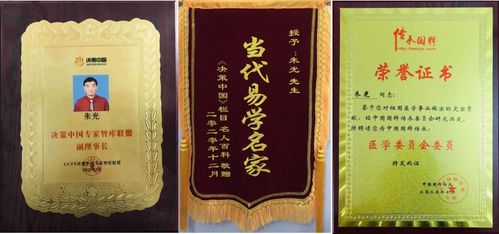 决策中国
朱光
决策中国专家智库联盟
副理事长
CCTV决策中国专家智库联盟
授予：朱光 先生
当代易学名家
《决策中国》栏目 名人百科 敬赠
二〇二〇年十二月
传承国粹
荣誉证书
朱光 同志：
鉴于您对祖国医学事业做出的突出贡
献，经中国国粹传承委员会研究决定，
特聘请您为中国国粹传承：
医学委员会委员
特发此证
中国国粹传承